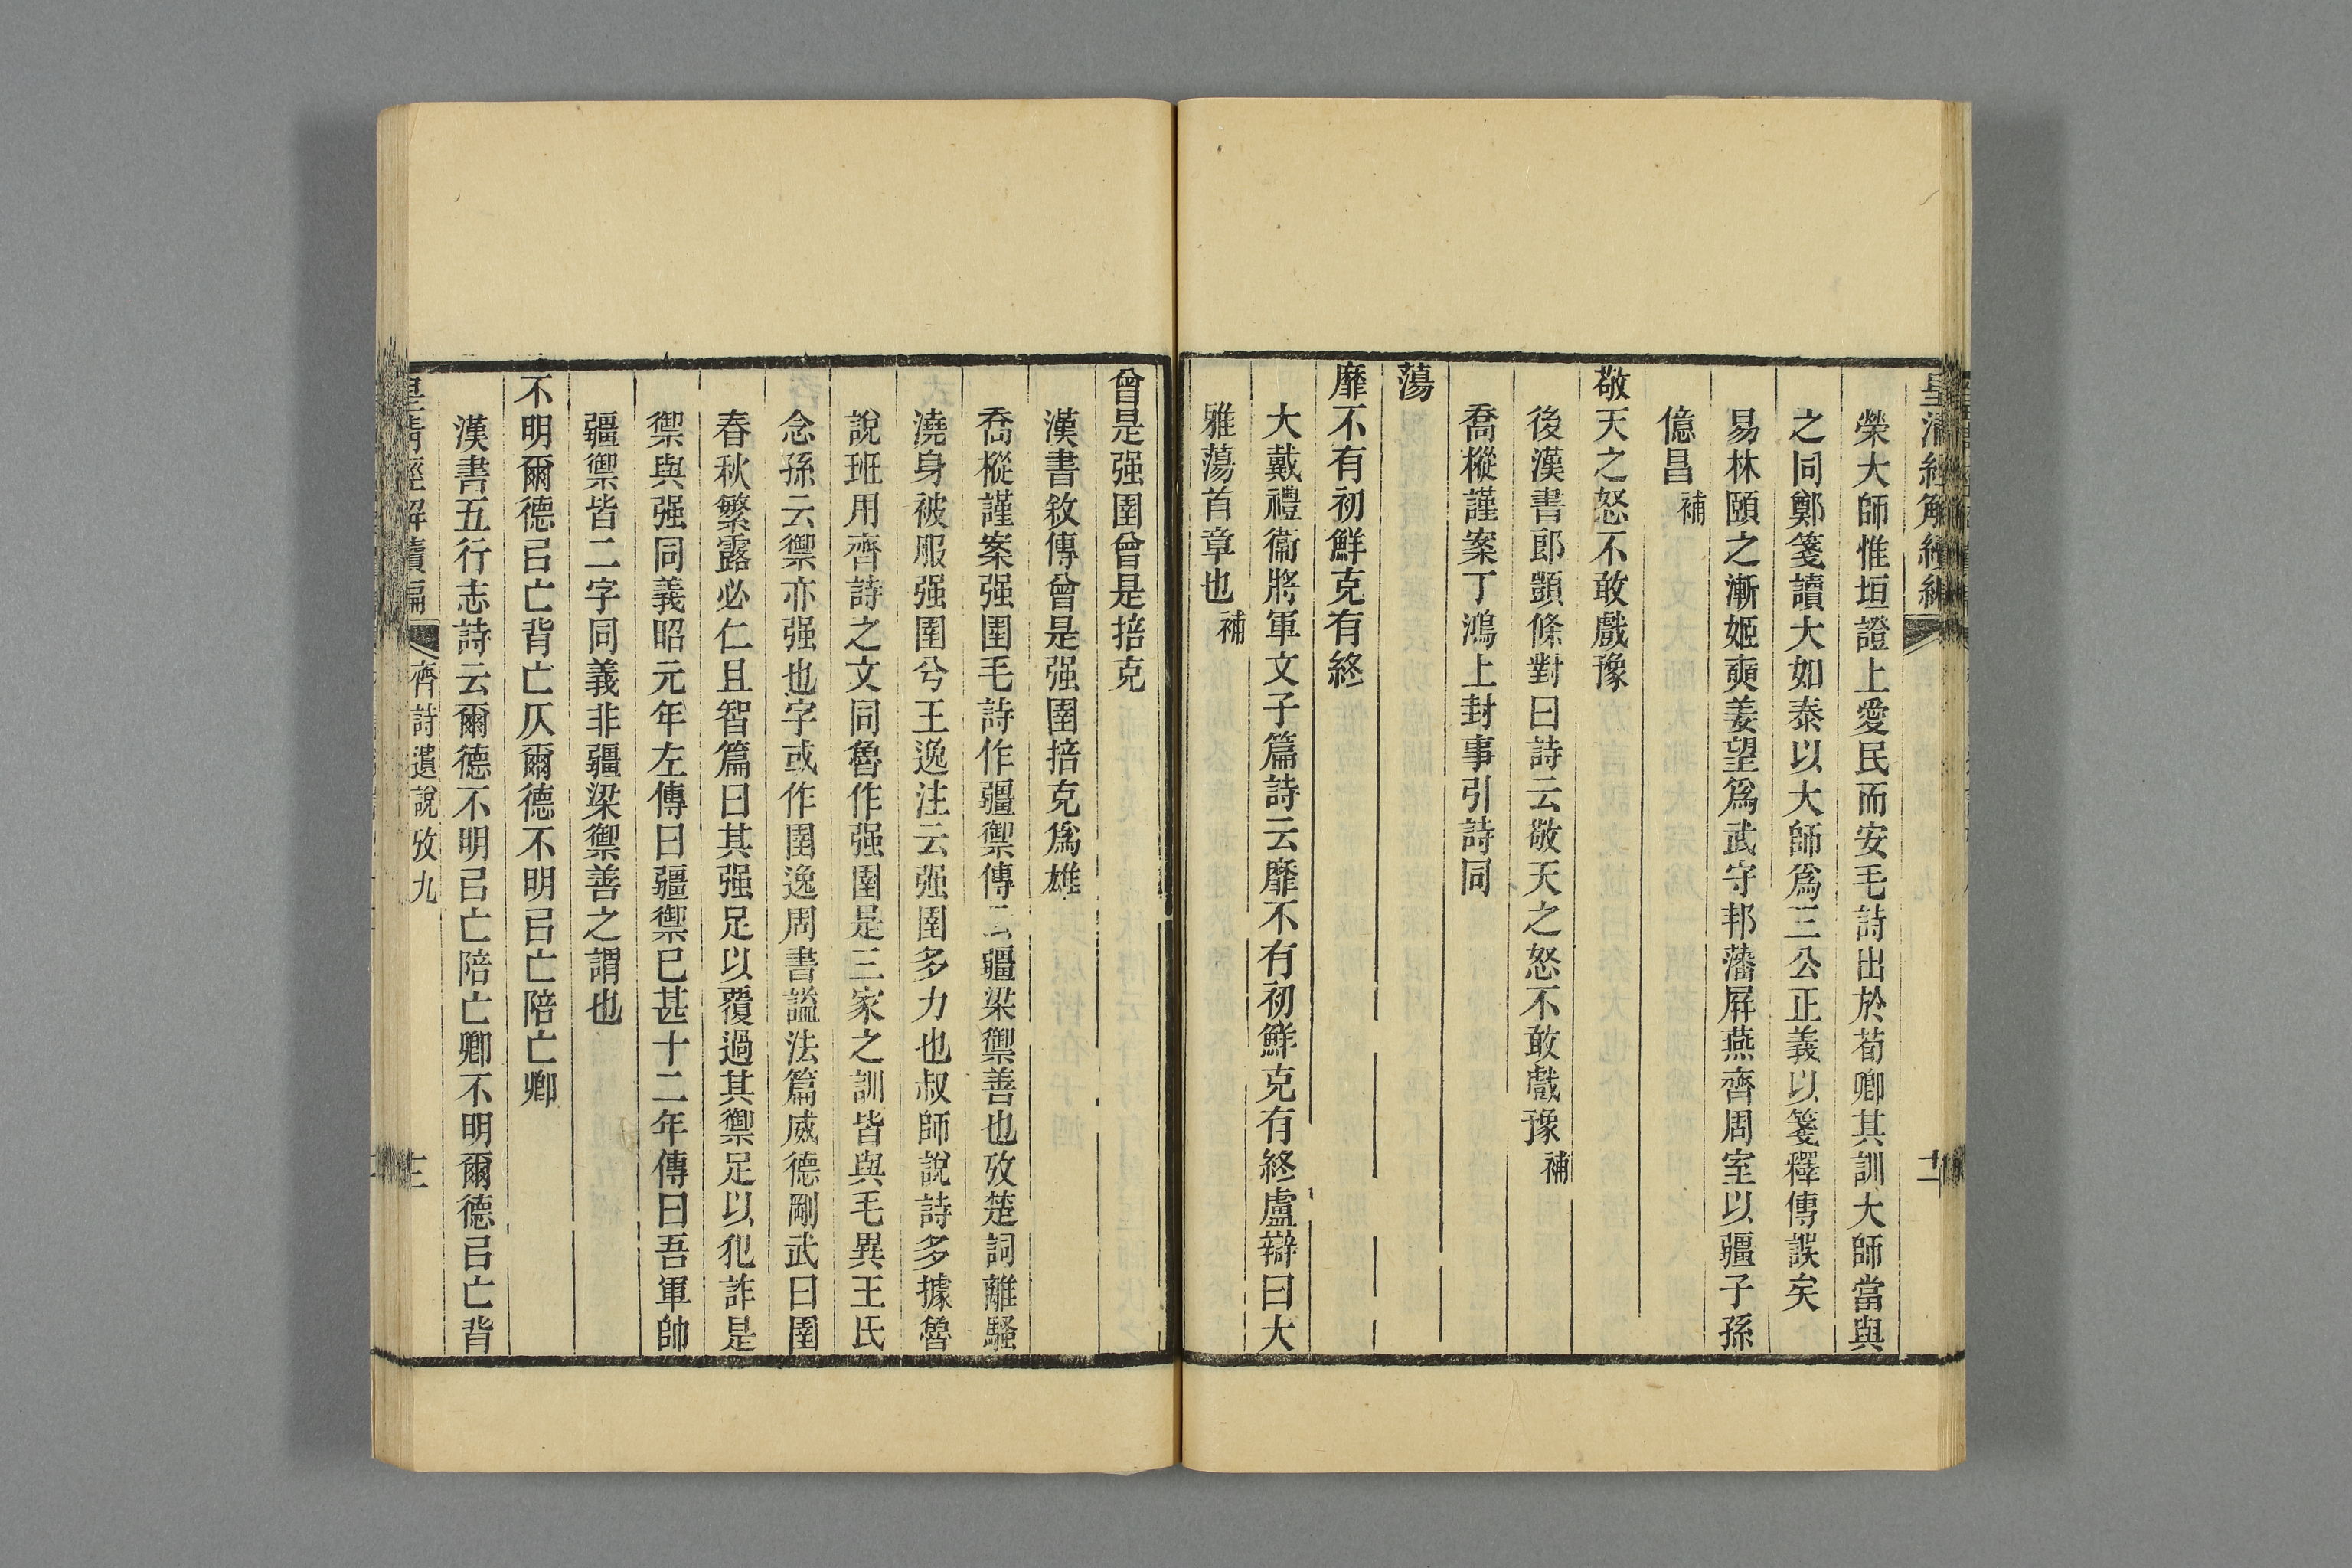 皇清經解續編
十二
榮大師惟垣證上愛民而安毛詩出於荀卿其訓大師當與
之同鄭箋讀大如泰以大師爲三公正義以箋釋傳誤矣
易林頤之漸姬奭姜望爲武守邦藩屏燕齊周室以疆子孫
億昌補
敬天之怒不敢戲豫
後漢書郎顗條對曰詩云敬天之怒不敢戲豫補
喬樅謹案丁鴻上封事引詩同
蕩
靡不有初鮮克有終
大戴禮衞將軍文子篇詩云靡不有初鮮克有終盧辯曰大
雅蕩首章也補
曾是强圉曾是掊克
漢書敘傳曾是强圉掊克爲雄
喬樅謹案强圉毛詩作彊禦傳云彊梁禦善也攷楚詞離騷
澆身被服强圉兮王逸注云强圉多力也叔師說詩多據魯
說班用齊詩之文同魯作强圉是三家之訓皆與毛異王氏
念孫云禦亦强也字或作圉逸周書謚法篇威德剛武曰圉
春秋繁露必仁且智篇曰其强足以覆過其禦足以犯詐是
禦與强同義昭元年左傳曰彊禦已甚十二年傳曰吾軍帥
彊禦皆二字同義非彊梁禦善之謂也
不明爾德㠯亡背亡仄爾德不明㠯亡陪亡卿
漢書五行志詩云爾德不明㠯亡陪亡卿不明爾德㠯亡背
皇清經解續編
齊詩遺說攷九